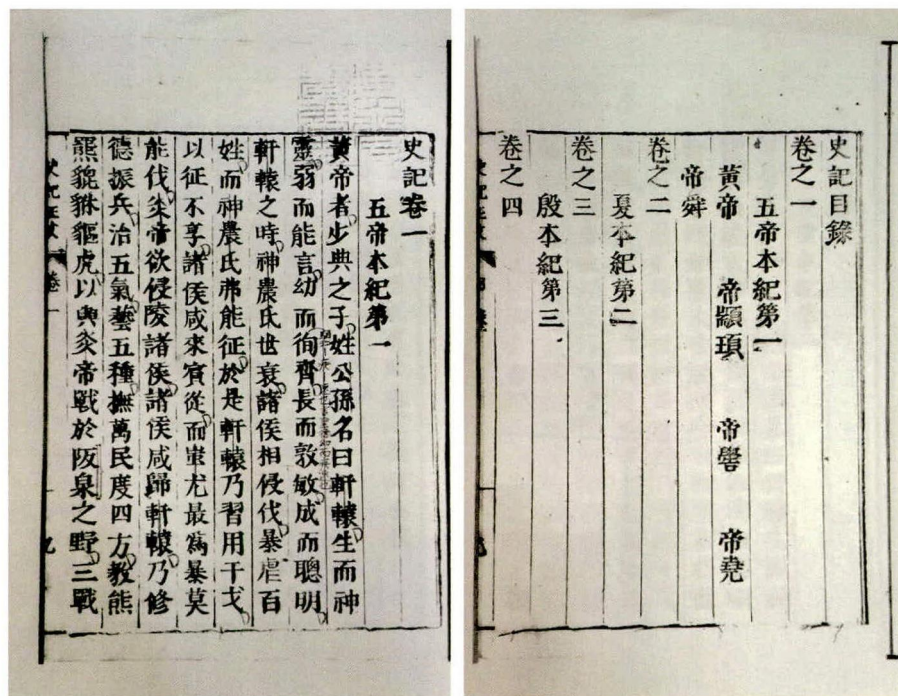 史記目錄
卷之一
五帝本紀第一
黃帝 帝顓頊 帝嚳 帝堯
帝舜
卷之二
夏本紀第二
卷之三
殷本紀第三
卷之四
史記卷一
五帝本紀第一
黃帝者少典之子姓公孫名曰軒轅生而神
靈弱而能言幼而徇齊長而敦敏成而聰明
軒轅之時神農氏世衰諸侯相侵伐暴虐百
姓而神農氏弗能征於是軒轅乃習用干戈
以征不享諸侯咸來賓從而蚩尤最爲暴莫
能伐炎帝欲侵陵諸侯諸侯咸歸軒轅乃修
德振兵治五氣藝五種撫萬民度四方教熊
羆貔貅貙虎以與炎帝戰於阪泉之野三戰